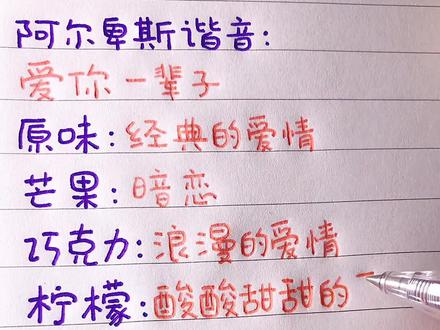 阿尔卑斯谐音:
爱你一辈子
原味:经典的爱情
芒果:暗恋
巧克力:浪漫的爱情
柠檬:酸酸甜甜的